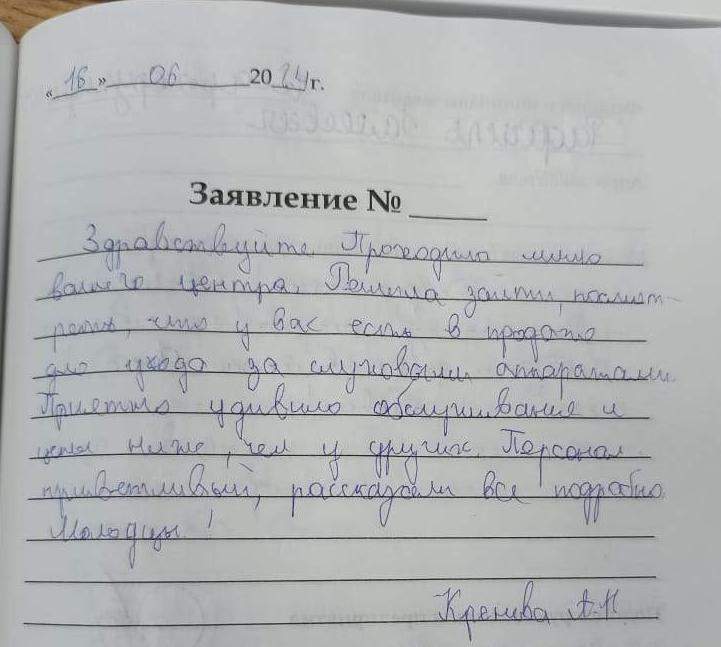 «16» 06 2024г.
Заявление №
Здравствуйте. Проходила мимо
вашего центра. Решила зайти, посмот-
реть, что у вас есть в продаже
для ухода за слуховыми аппаратами.
Приятно удивило обслуживание и
цены ниже, чем у других. Персонал
приветливый, рассказали все подробно.
Молодцы!
А.Н